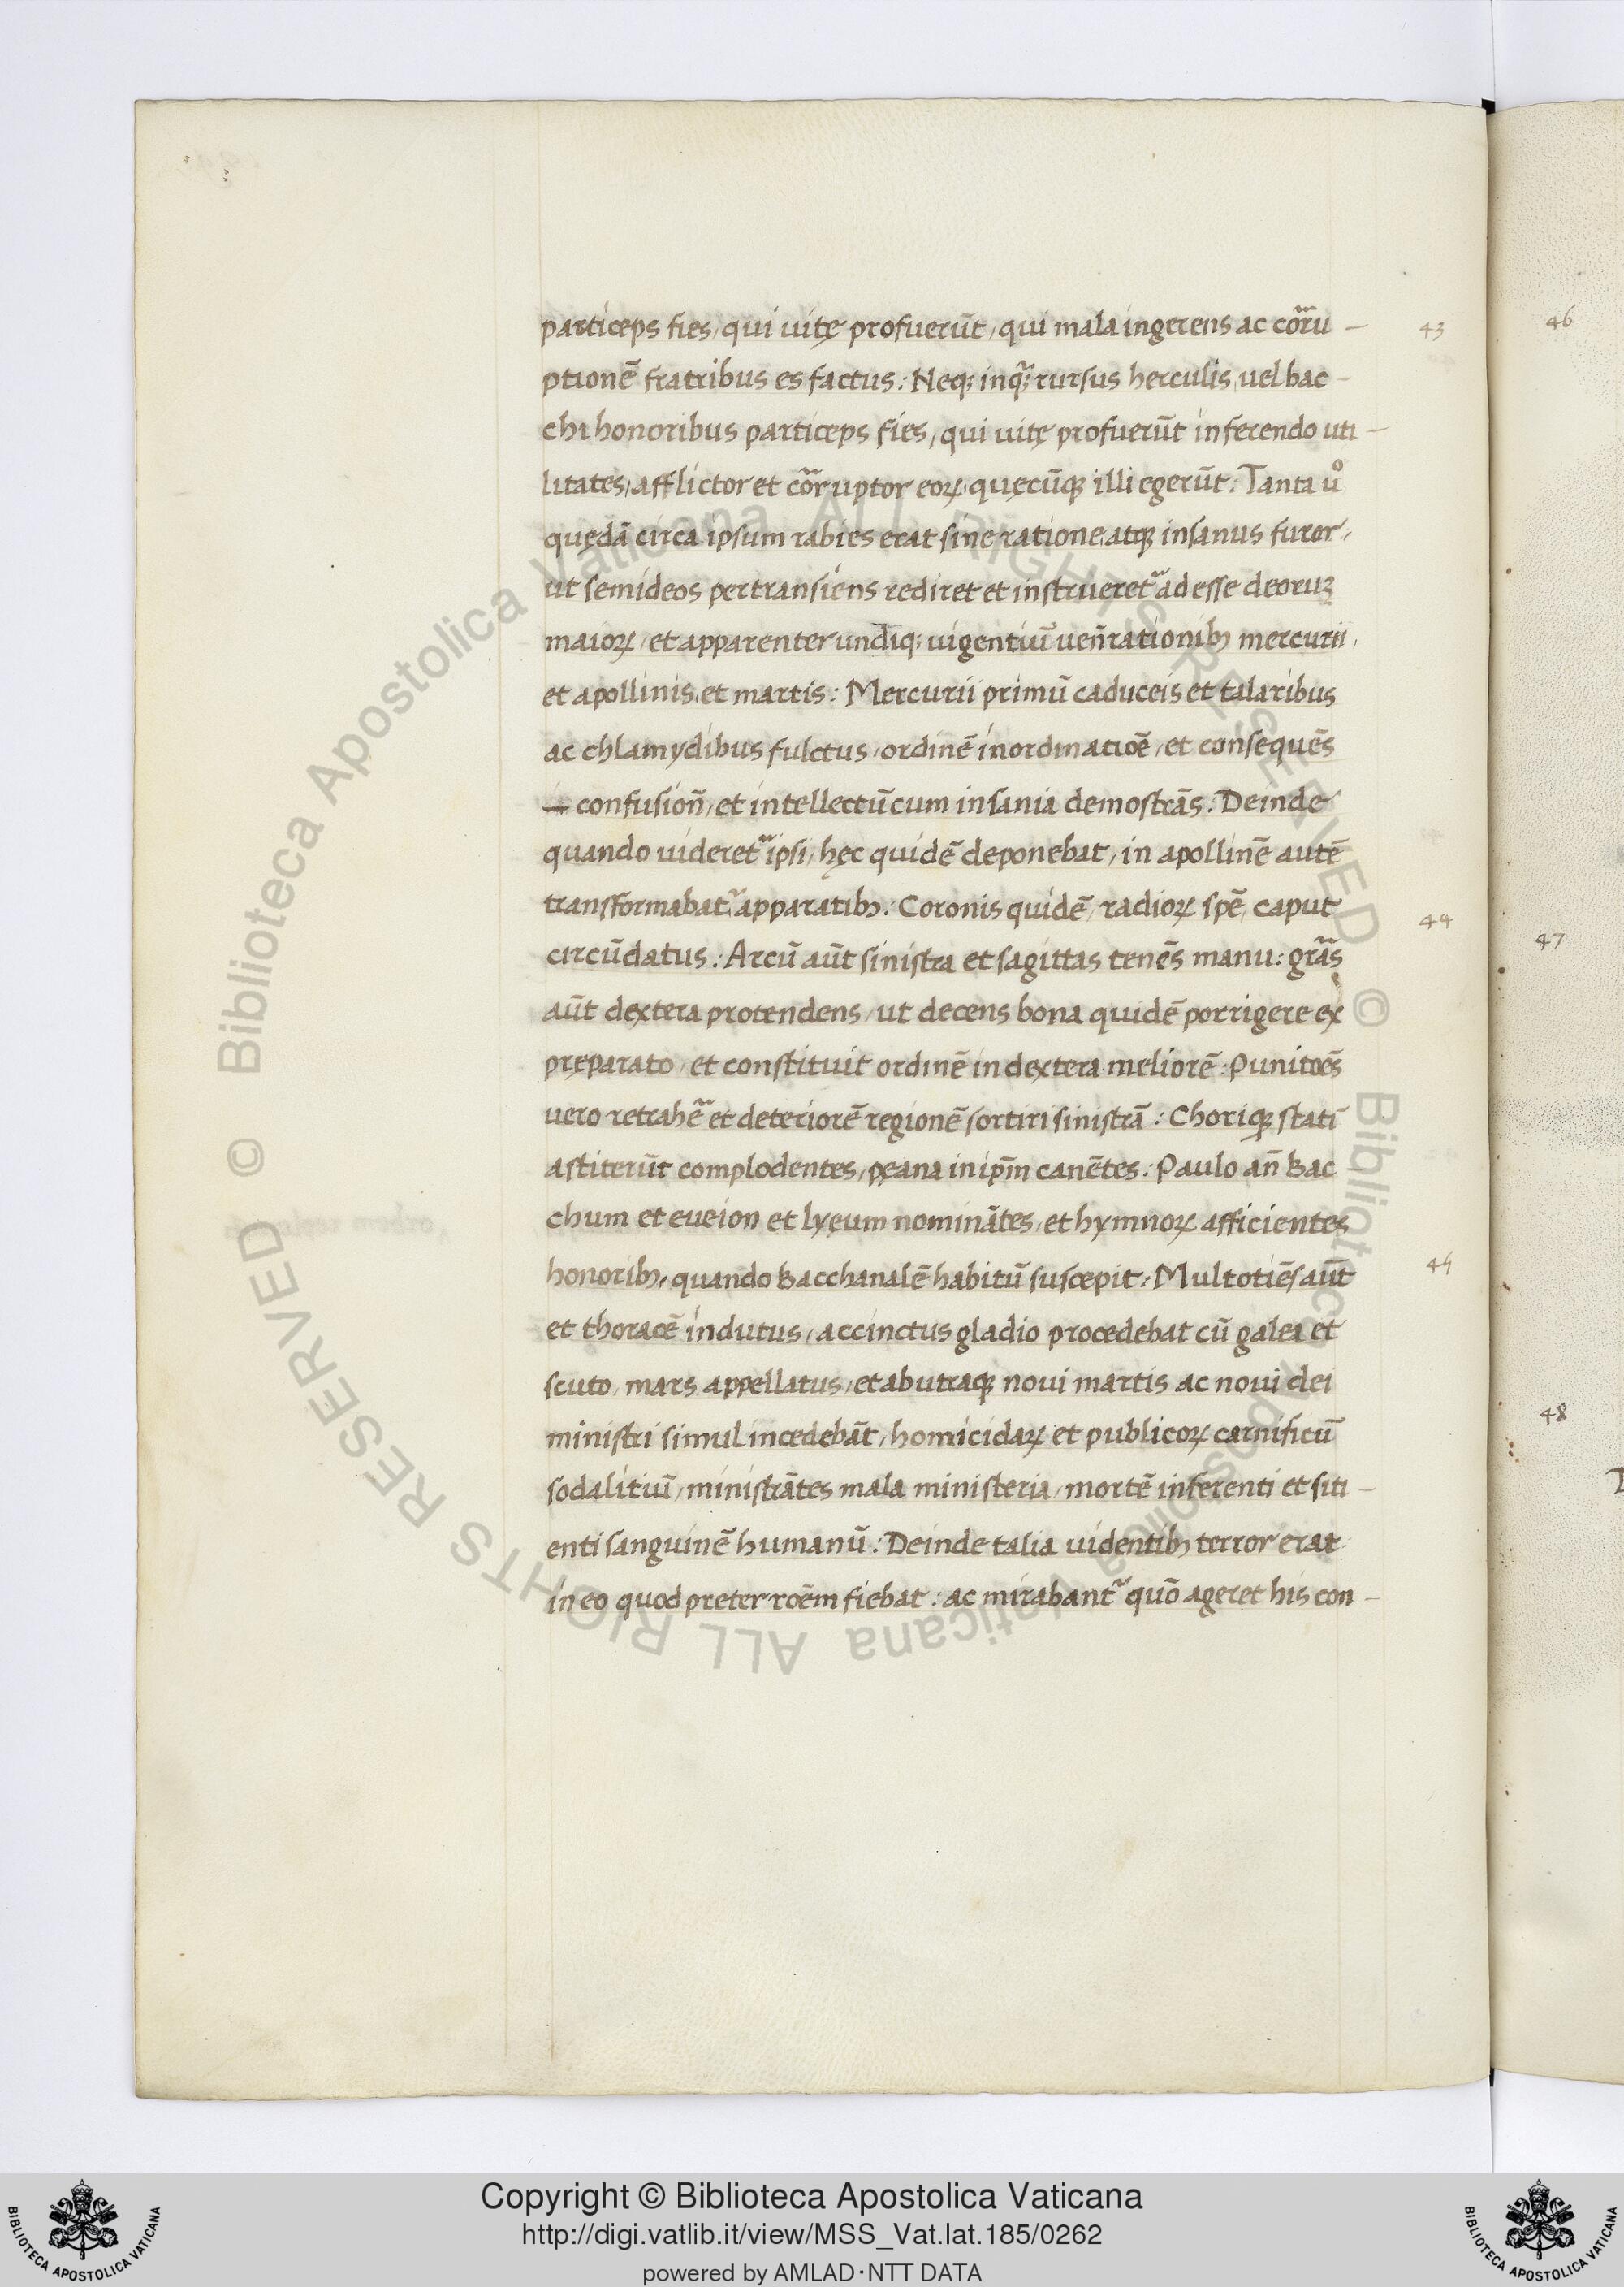 particeps fies, qui uitę profuerūt, qui mala ingerens ac cōrru –
ptionē fratribus es factus: Neq; inq̃; rursus herculis, uel bac –
chi honoribus particeps fies, qui uitę profuerūt inferendo uti –
litates, afflictor et cōrruptor eoꝝ, quęcūq; illi egerūt: Tanta uͦ
quędā circa ipsum rabies erat sine ratione, atq; insanus furor,
ut semideos pertransiens rediret et instrueret᷑ ad esse deoruꝫ
maioꝝ, et apparenter undiq; uigentiū uen̄rationibꝰ mercurii,
et apollinis, et martis: Mercurii primū caduceis et talaribus
ac chlamydibus fulctus, ordinē inordinatiōe, et consequēs
– confusion̄, et intellectū cum insania demostrās: Deinde
quando uideret᷑ ipsi, hęc quidē deponebat, in apollinē autē
transformabat᷑ apparatibꝰ: Coronis quidē, radioꝝ spē, caput
circūdatus: Arcū aūt sinistra et sagittas tenēs manu: grās
aūt dextera protendens, ut decens bona quidē porrigere ex
pręparato, et constituit ordinē in dextera meliorē: Punitōes
uero retrahē᷑ et deteriorē regionē sortiri sinistrā: Choriq; statī
astiterūt complodentes, pęana in ip̄m canētes: Paulo an̄ Bac
chum et eueion et lyęum nominātes, et hymnoꝝ afficientes
honoribꝰ, quando Bacchanalē habitū suscepit: Multotiēs aūt
et thoracē indutus, accinctus gladio procedebat cū galea et
scuto, mars appellatus, et ab utraq; noui martis ac noui dei
ministri simul incedebāt, homicidaꝝ et publicoꝝ carnificū
sodalitiū, ministrātes mala ministeria, mortē inferenti et siti –
enti sanguinē humanū: Deinde talia uidentibꝰ terror erat
in eo quod preter rōem fiebat: ac mirabant᷑ quō ageret his con –
43
44
45
46
47
48
© Biblioteca Apostolica Vaticana ALL RIGHTS RESERVED
© Biblioteca Apostolica Vaticana ALL RIGHTS RESERVED
Copyright © Biblioteca Apostolica Vaticana
http://digi.vatlib.it/view/MSS_Vat.lat.185/0262
powered by AMLAD·NTT DATA
BIBLIOTECA APOSTOLICA VATICANA
BIBLIOTECA APOSTOLICA VATICANA